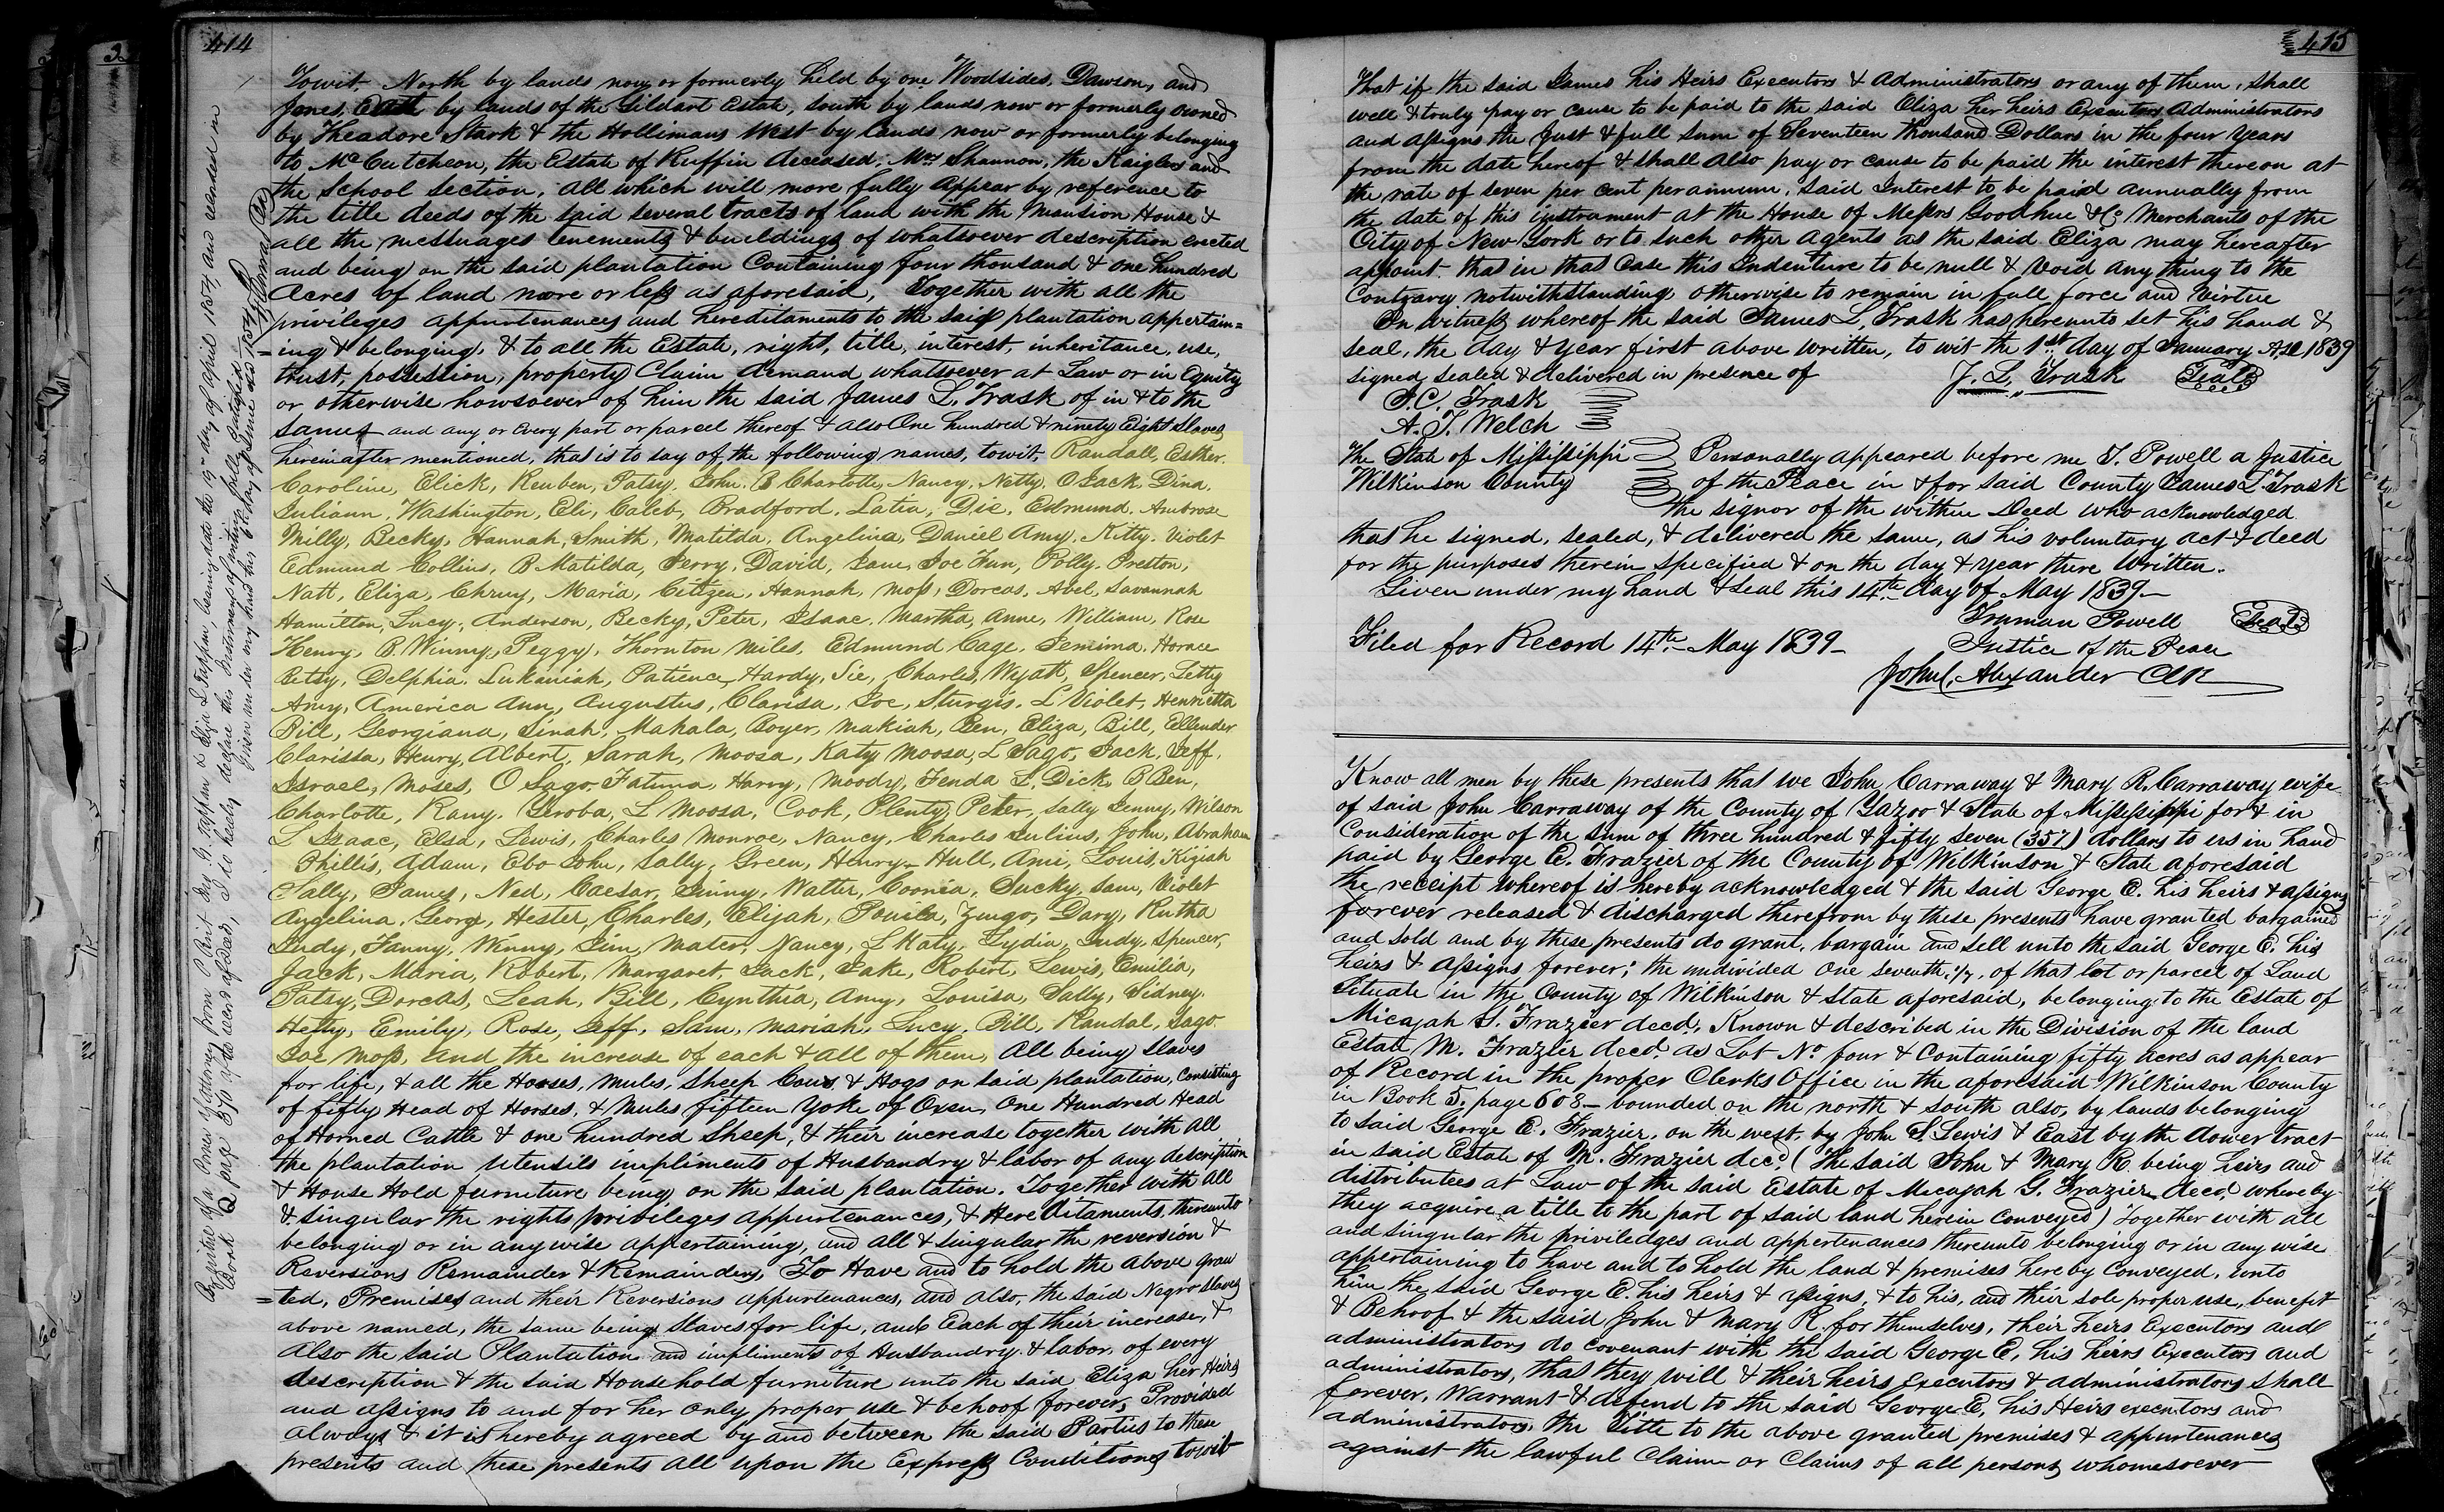 414
Towit, North by lands now or formerly held by one Woodsides, Dawson, and
Jones, East by lands of the Gildart Estate, South by lands now or formerly owned
by Theadore Stark & the Hollimans West by lands now or formerly belonging
to McCutcheon, the Estate of Ruffin deceased, Mrs Shannon, the Kaiglers and
the School Section, all which will more fully appear by reference to
the title deeds of the said several tracts of land with the Mansion House &
all the messuages tenements & buildings of whatsoever description erected
and being on the said plantation Containing four thousand & one hundred
Acres of land more or less as aforesaid, together with all the
privileges appurtenances and hereditaments to the said plantation appertain=
=ing & belonging, & to all the Estate, right, title, interest, inheritance, use,
trust, possession, property Claim demand whatsoever at Law or in Equity
or otherwise howsoever of him the said James L. Trask of in & to the
same and any or every part or parcel thereof & also One hundred & ninety Eight Slaves
hereinafter mentioned, that is to say of the following names, towit, Randall, Esther,
Caroline, Elick, Reuben, Patsy, John, B Charlotte, Nancy, Netty, O Jack, Dina,
Juliann, Washington, Eli, Caleb, Bradford, Latia, Die, Edmund, Ambrose
Milly, Becky, Hannah, Smith, Matilda, Angelina, Daniel Amy, Kitty, Violet
Edmund Collins, B Matilda, Perry, David, Jane, Joe Fun, Polly, Preston,
Natt, Eliza, Maria, Hannah, Moss, Dorcas, Abel, Savannah
Hamilton, Lucy, Anderson, Becky, Peter, Isaac, Martha, Anne, William, Rose
Henry, B. Winny, Peggy, Thornton Miles, Edmund Cage, Jemima, Horace
Betsy, Delphia, Lukaniah, Patience, Hardy, Sie, Charles Wyatt, Spencer, Letty
Amy, America Ann, Augustus, Clarisa, Joe, Sturgis, L Violet, Henrietta
Bill, Georgiana, Sinah, Mahala, Boyer, Makiah, Ben, Eliza, Bill, Ellender
Clarissa, Henry, Albert, Sarah, Moosa, Katy Moosa, L Sago, Jack, Jeff,
Israel, Moses, O Sago, Fatima, Harry, Moody, Fenda S, Dick, B Ben,
Charlotte, Rany, Yeroba, L Moosa, Cook, Plenty, Peter, Sally Jenny, Wilson
L Isaac, Elsa, Lewis, Charles Monroe, Nancy, Charles Julius, John, Abraham
Phillis, Adam, Ebo John, Sally, Green, Henry Hull, Ami, Louis, Kiziah
Tally, James, Ned, Caesar, Jinny, Walter, Coomia, Sucky, Sam, Violet
Angelina, George, Hester, Charles, Elijah, Zingo, Dary, Rutha
Judy, Fanny, Winny, Jim, Mater, Nancy, L Katy, Lydia, Judy, Spencer,
Jack, Maria, Robert, Margaret, Jack, Jake, Robert, Lewis, Emilia,
Patsy, Dorcas, Leah, Bill, Cynthia, Amy, Louisa, Sally, Sidney,
Hetty, Emily, Rose, Jeff, Sam, Mariah, Lucy, Bill, Randal, Sago
Joe Moss, and the increase of each & all of them, All being slaves
for life, & all the Horses, Mules, Sheep Cows, & Hogs on said plantation, Consisting
of fifty Head of Horses, & Mules fifteen Yoke of Oxen One Hundred Head
of Horned Cattle & one hundred Sheep, & their increase together with all
the plantation Utensils impliments of Husbandry & labor of any description
& House Hold furniture being on the said plantation. Together with all
& singular the rights privileges appurtenances, & Hereditaments, thereunto
belonging or in anywise appertaining, and all & singular the reversion &
Reversions Remainder & Remainders, To Have and to hold the above gran
=ted, Premises and their Reversions appurtenances, and also, the said Negro Slaves
above named, the same being Slaves for life, and Each of their increase, &
Also the said Plantation and impliments of Husbandry & labor, of every
description & the said Household furniture unto the said Eliza her Heirs
and assigns to and for her only proper use & behoof forever, Provided
always & it is hereby agreed by and between the said Parties to these
presents and these presents all upon the Express Conditions towit
Register of a Power of Attorney from Tappan & Eliza L Tappan, bearing date the 19th day of april 1854 and recorded in
Book Q page 370 of the record of Deeds, I do hereby declare this Instrument of writing fully satisfied
Given under my hand this day of June AD 1854
415
That if the said James his Heirs Executors & Administrators or any of them, shall
well & truly pay or cause to be paid to the said Eliza her heirs Executors Administrators
and assigns the just & full sum of Seventeen thousand Dollars in the four years
from the date hereof & shall also pay or cause to be paid the interest thereon at
the rate of seven per cent per annum, said Interest to be paid annually from
the date of this instrument at the House of Messrs Goodhue & Co Merchants of the
City of New York or to such other Agents as the said Eliza may hereafter
appoint, that in that Case this Indenture to be null & Void any thing to the
Contrary notwithstanding otherwise to remain in full force and Virtue
In Witness whereof the said James L. Trask has hereunto set his hand &
seal, the day & year first above written, to wit the 1st day of January AD 1839
signed sealed & delivered in presence of J. L. Trask Seal
A. J. Welch
The State of Mississippi Personally appeared before me T. Powell a Justice
Wilkinson County of the Peace in & for said County James L. Trask
the signor of the within Deed who acknowledged
that he signed, sealed, & delivered the same, as his voluntary act & deed
for the purposes therein specified & on the day & year there Written.
Given under my hand & seal this 14th day of May 1839
Truman Powell Seal
Filed for Record 14th May 1839 Justice of the Peace
John C. Alexander Clk
Know all men by these presents that we John Carraway & Mary R. Carraway wife
of said John Carraway of the County of Yazoo & State of Mississippi for & in
Consideration of the sum of three hundred & fifty seven (357) dollars to us in hand
paid by George E. Frazier of the County of Wilkinson & State aforesaid
the receipt whereof is hereby acknowledged & the said George E. his heirs & assigns
forever released & discharged therefrom by these presents have granted bargained
and sold and by these presents do grant, bargain and sell unto the said George E. his
heirs & assigns forever; the undivided one seventh, 1/7, of that lot or parcel of Land
Situate in the County of Wilkinson & State aforesaid, belonging to the Estate of
Micajah G. Frazier decd, Known & described in the Division of the land
Estate M. Frazier decd as Lot No four & Containing fifty acres as appear
of Record in the proper Clerks Office in the aforesaid Wilkinson County
in Book S, page 608 bounded on the north & south also, by lands belonging
to said George E. Frazier, on the west, by John S. Lewis & East by the dower tract
in said Estate of M. Frazier decd. (The said John & Mary R. being heirs and
distributees at Law of the said Estate of Micajah G. Frazier decd, whereby
they acquire a title to the part of said land herein Conveyed) Together with all
and singular the priviledges and appertenances thereunto belonging or in any wise
appertaining to have and to hold the land & premises hereby Conveyed, unto
him the said George E. his heirs & assigns, & to his, and their sole proper use, benefit
& Behoof & the said John & Mary R. for themselves, their heirs Executors and
administrators do covenant with the said George E, his heirs Executors and
administrators, that they will & their heirs Executors & administrators shall
forever, Warrant & defend to the said George E, his Heirs executors and
administrators, the Title to the above granted premises & appurtenances
against the lawful Claim or Claims of all persons whomesoever